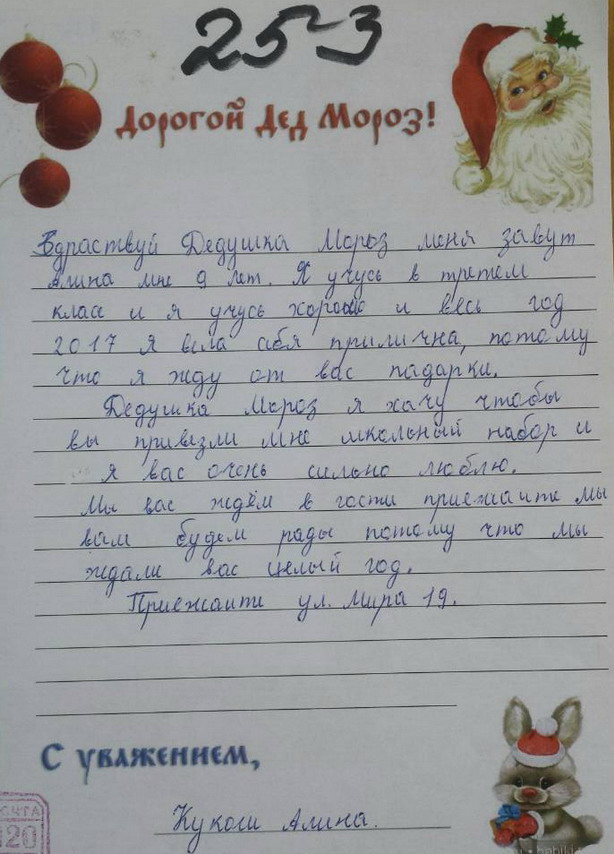 25-3
Дорогой Дед Мороз!
Здраствуй Дедушка Мороз меня завут
Алина мне 9 лет. Я учусь в третем
класе и я учусь хорошо и весь год
2017 я вела себя прилична, потому
что я жду от вас падарки.
Дедушка Мороз я хачу чтобы
вы привезли мне школьный набор и
я вас очень сильно люблю.
Мы вас ждём в гости приежаите мы
вам будем рады потому что мы
ждали вас целый год.
Приежаити ул. Мира 19.
С уважением,
Кукош Алина.
20